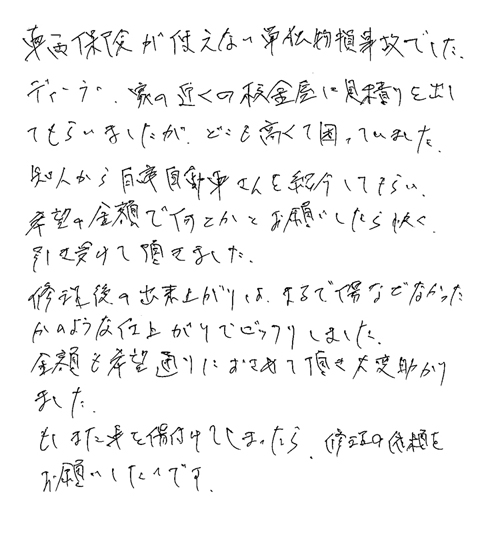 車両保険が使えない単独物損事故でした。
ディーラー、家の近くの板金屋に見積りを出し
てもらいましたが、どこも高くて困っていました。
知人から自動車さんを紹介してもらい、
希望の金額で何とかとお願いしたら快く
引き受けて頂きました。
修理後の出来上がりは、まるで傷などなかった
かのような仕上がりでビックリしました。
金額も希望通りにおさめて頂き大変助かり
ました。
もしまた車を傷付けてしまったら、修理の依頼を
お願いしたいです。